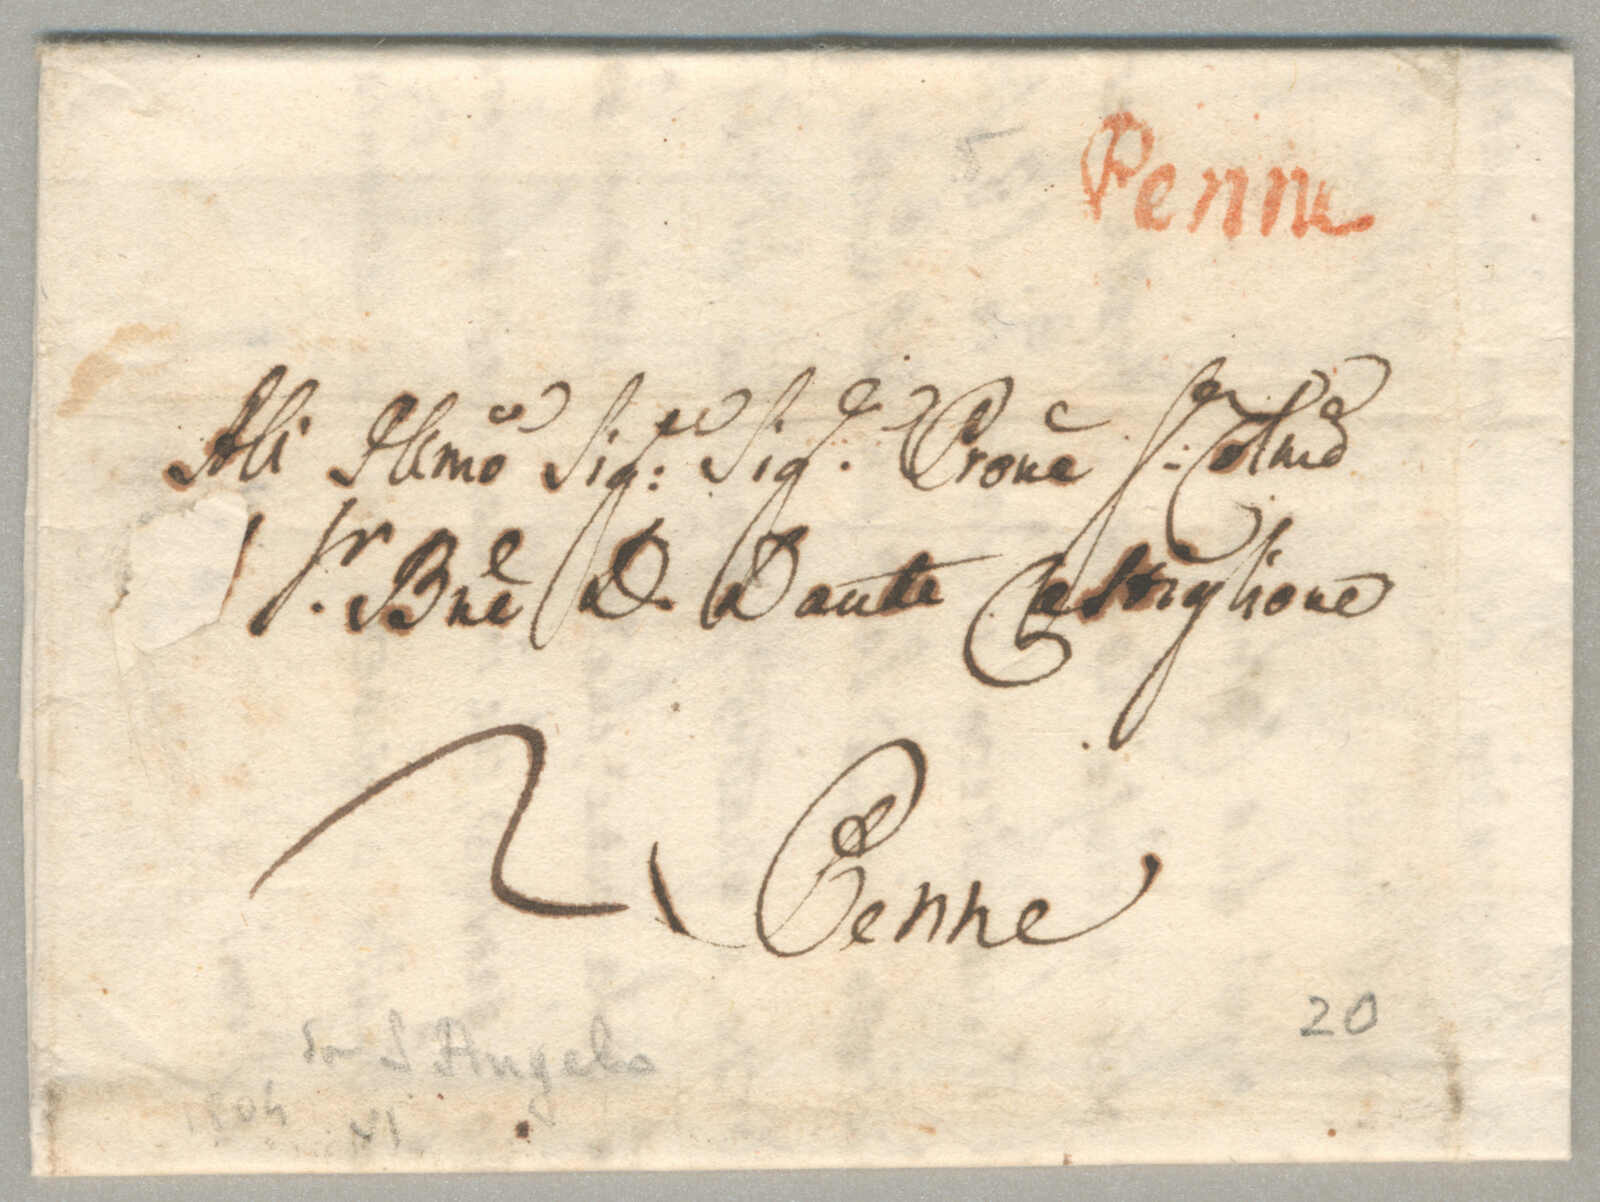 Penne
Alli Illmo Sig.re Sig.e Prone
Sr. Bne D. Dante Castiglione
2
Penne
20
S Angelo
1804